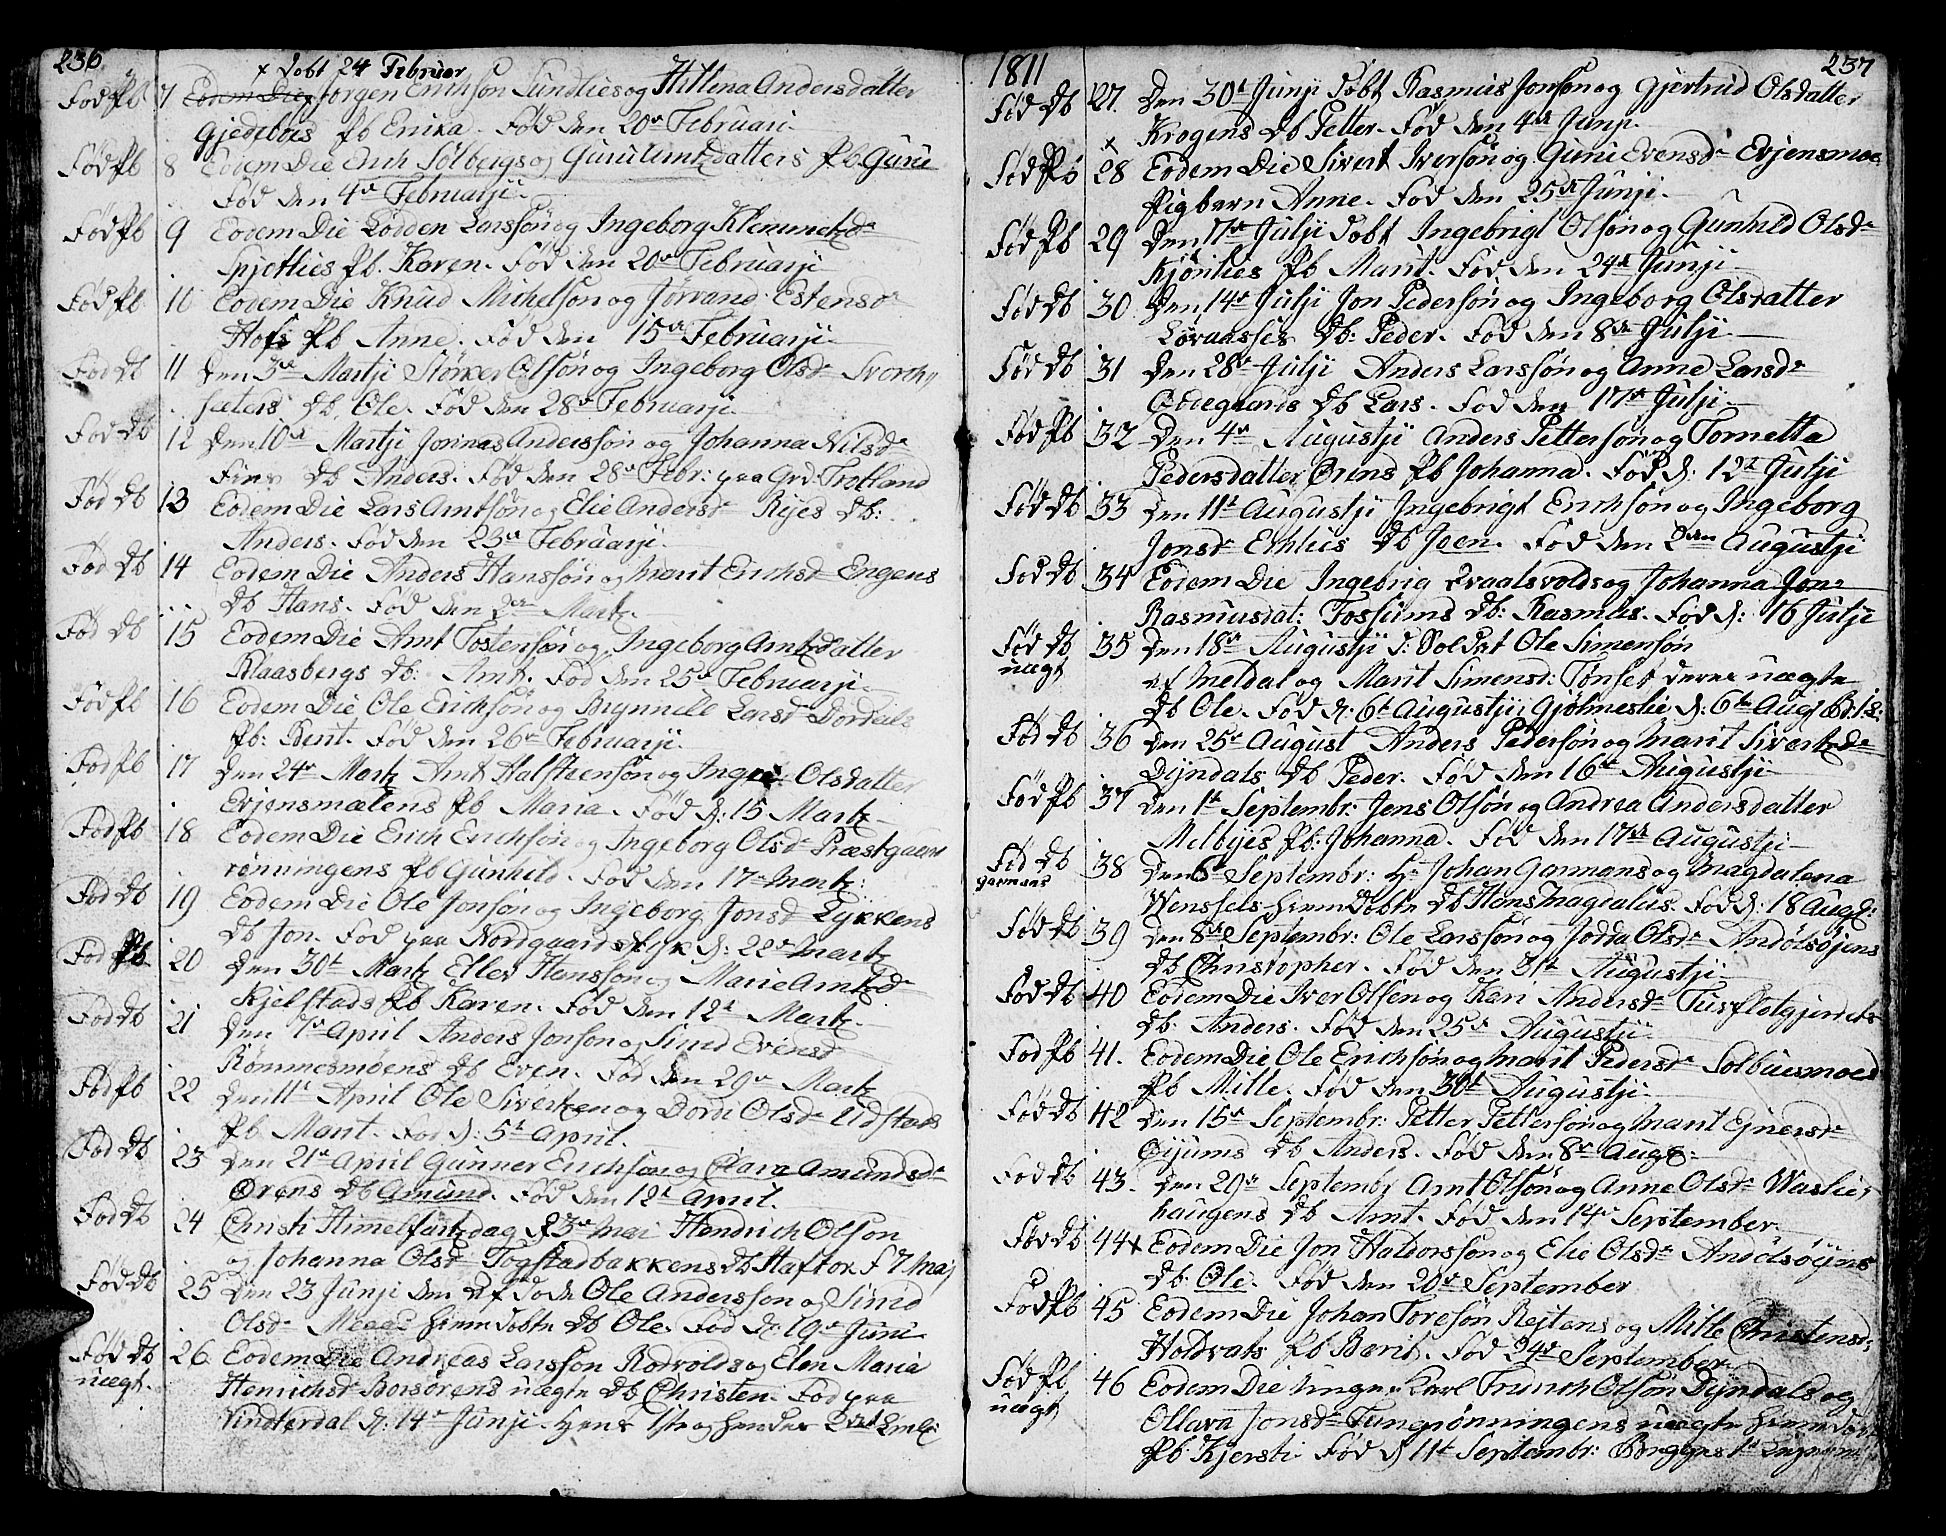 236
x Døbt 24 Februar
Fød Pb 7 Eodem Die Jorgen Erichsøn Sundlies og Hellena Andersdatter
Gjedebøes Pb Erika. Fød den 20de Februari
Fød Pb 8 Eodem Die Erich Sølbergs og Guru Arntzdatters Pb Guru
Fød den 4de Februarji
Fød Pb 9 Eodem Die Lodden Larssøn og Ingeborg Klemmetzdr
Spjotlies Pb. Karen. Fød den 20de Februarji
Fød Pb 10 Eodem Die Knud Michelsøn og Jørvand Estensdr
Hofs Pb Anne. Fød den 15de Februarji
Fød Db 11 Den 3de Martji Størker Olsøn og Ingeborg Olsdr Svorch
sæters Db, Ole. Fød den 28de Februarji
Fød Db 12 Den 10de Martji Jonnas Anderssøn og Johanna Nilsdr
Db Anders. Fød den 28de Febr: paa Grd: Trotland
Fød Db 13 Eodem Die Lars Arntsøn og Elie Andersdr Rijes Db:
Anders. Fød den 23de Februarji
Fød Db 14 Eodem Die Anders Hanssøn og Marit Erichsdr Engens
Db Hans. Fød den 2den Martz
Fød Db 15 Eodem Die Arnt Tostensøn og Ingeborg Arntzdatter
Klaasbergs Db: Arnt. Fød den 25de Februarji
Fød Pb 16 Eodem Die Ole Erichsøn og Brynnild Larsdr Dordals
Pb: Berit. Fød den 26de Februarji
Fød Pb 17 Den 24de Martz Arnt Halsteensøn og Inger Olsdatter
Evjensmælens Pb Maria. Fød d: 15 Martz
Fød Pb 18 Eodem Die Erich Erichsøn og Ingeborg Olsdr Præstgaard
rønningens Pb Gunhild. Fød den 17de Martz:
Fød Db 19 Eodem Die Ole Jonsøn og Ingeborg Jonsdr Lykkens
Db Jon. Fød paa Nordgaards d: 22de Martz
Fød Pb 20 Den 30t Martz Ellev Hanssøn og Marie Arntzdr
Kjelstads Pb Karen. Fød den 12t Martz.
Fød Db 21 Den 7de April Anders Jonsøn og Sirid Evensdr
Rømmesmoens Db Even. Fød den 29de Martz
Fød Pb 22 Den 11t April Ole Sivertzen og Dordi Olsdr Udstads
Pb Marit. Fød d: 5t April.
Fød Db 23 Den 21de April Gunner Erichsøn og Clara Amundsdr
Ørens Db Amund. Fød den 12t April.
Fød Db 24 Christi Himelfartzdag 23de Mai Hendrich Olsøn
og Johanna Olsdr Togstadbakkens Db Haftor. F 7 Maj
Fød Db 25 Den 23 Junji den Ole Anderssøn og Sirid
Olsdr Moens hiemdøbte Db Ole. Fød d: 19de Juni
Fød Db 26 Eodem Die Andreas Larssøn Rodvolds og Elen Maria
uægt.
Henrichsdr Borsørens uægte Db Christen. Fød paa
Vinterdal d: 14de Junji. Hans 1ste og hendes 2det Leml:
1811
237
Fød Db 27. Den 30t Junji Døbt Rasmus Jonsøn og Gjertrud Olsdatter
Krogens Db Petter. Fød den 4de Junji.
x
Fød Pb 28 Eodem Die Sivert Iversøn og Guru Evensdr Evjensmoe
Pigbarn Anne. Fød den 25de Junji
Fød Pb 29 Den 7de Julji Døbt Ingebrigt Olsøn og Gunhild Olsdr
Kjønlies Pb Marit. Fød den 24de Junji
Fød Db 30 Den 14de Julji Jon Pedersøn og Ingeborg Olsdatter
Løvaasses Db: Peder. Fød den 8de Julji
Fød Db 31 Den 28de Julji Anders Larssøn og Anne Larsdr
Odegaards Db Lars. Fød den 17de Julji
Fød Pb 32 Den 4de Augustji Anders Pettersøn og Tornetta
Pedersdatter Ørens Pb Johanna. Fød d: 12t Julji
Fød Db 33 Den 11t Augustji Ingebrigt Erichsøn og Ingeborg
Jonsdr Ethlies Db Joen. Fød den 2den Augustji
Fød Db 34 Eodem Die Ingebrig Qvaalsvolds og Johanna Jon=
Rasmusdat: Fossums Db: Rasmus. Fød d: 16 Julji
Fød Db 35 Den 18de Augustji d: Soldat Ole Simensøn
uægt
af Meldal og Marit Simensd: Tønset deres uægte
Db Ole. Fød d: 6t Augustji, Gjølmeslie d: 6te Aug
Fød Db 36 Den 25de August Anders Pedersøn og Marit Sivertzdr
Dijndals Db Peder. Fød den 16de Augustji
Fød Pb 37 Den 1t Septembr: Jens Olsøn og Andrea Andersdatter
Melbyes Pb: Johanna. Fød den 17de Augustji
Fød Db 38 Den 6t Septembr: Hr Johan Garmans og Magdalena
Garmans
Wenssels hiemdøbte Db Hans Magdalus. Fød d: 18 Aug:
Fød Db 39 Den 8de Septembr: Ole Larssøn og Jodda Olsdr Andølsøjens
Db Christopher. Fød den 31t Augustji
Fød Db 40 Eodem Die Iver Olsen og Kari Andersdr
Db: Anders. Fød den 25de Augustji
Fød Pb 41. Eodem Die Ole Erichsøn og Marit Pedersdr Solbusmoes
Pb Mille. Fød den 30t Augustji
Fød Db 42 Den 15de Septembr: Petter Pettersøn og Marit Ejnersdr
Øijums Db Anders. Fød den 8de Aug:
Fød Db 43. Den 29de Septembr Arnt Olsøn og Anne Olsdr Waslie
haugens Db Arnt. Fød den 14de September
Fød Db 44 x Eodem Die Jon Haldorssøn og Elie Olsdr Andølsøyens
Db: Ole. Fød den 20de September
Fød Pb 45 Eodem Die Johan Toresøn Rejtens og Mille Christensd:
Holdvats Pb Berit. Fød 24de September
Fød Pb 46 Eodem Die unge Karl Trunch Olsøn Dijndals og
uægt
Ollava Jonsdr Tungrønningens uægte hiemdøbt
Pb Kjersti Fød d 11t Septembr: